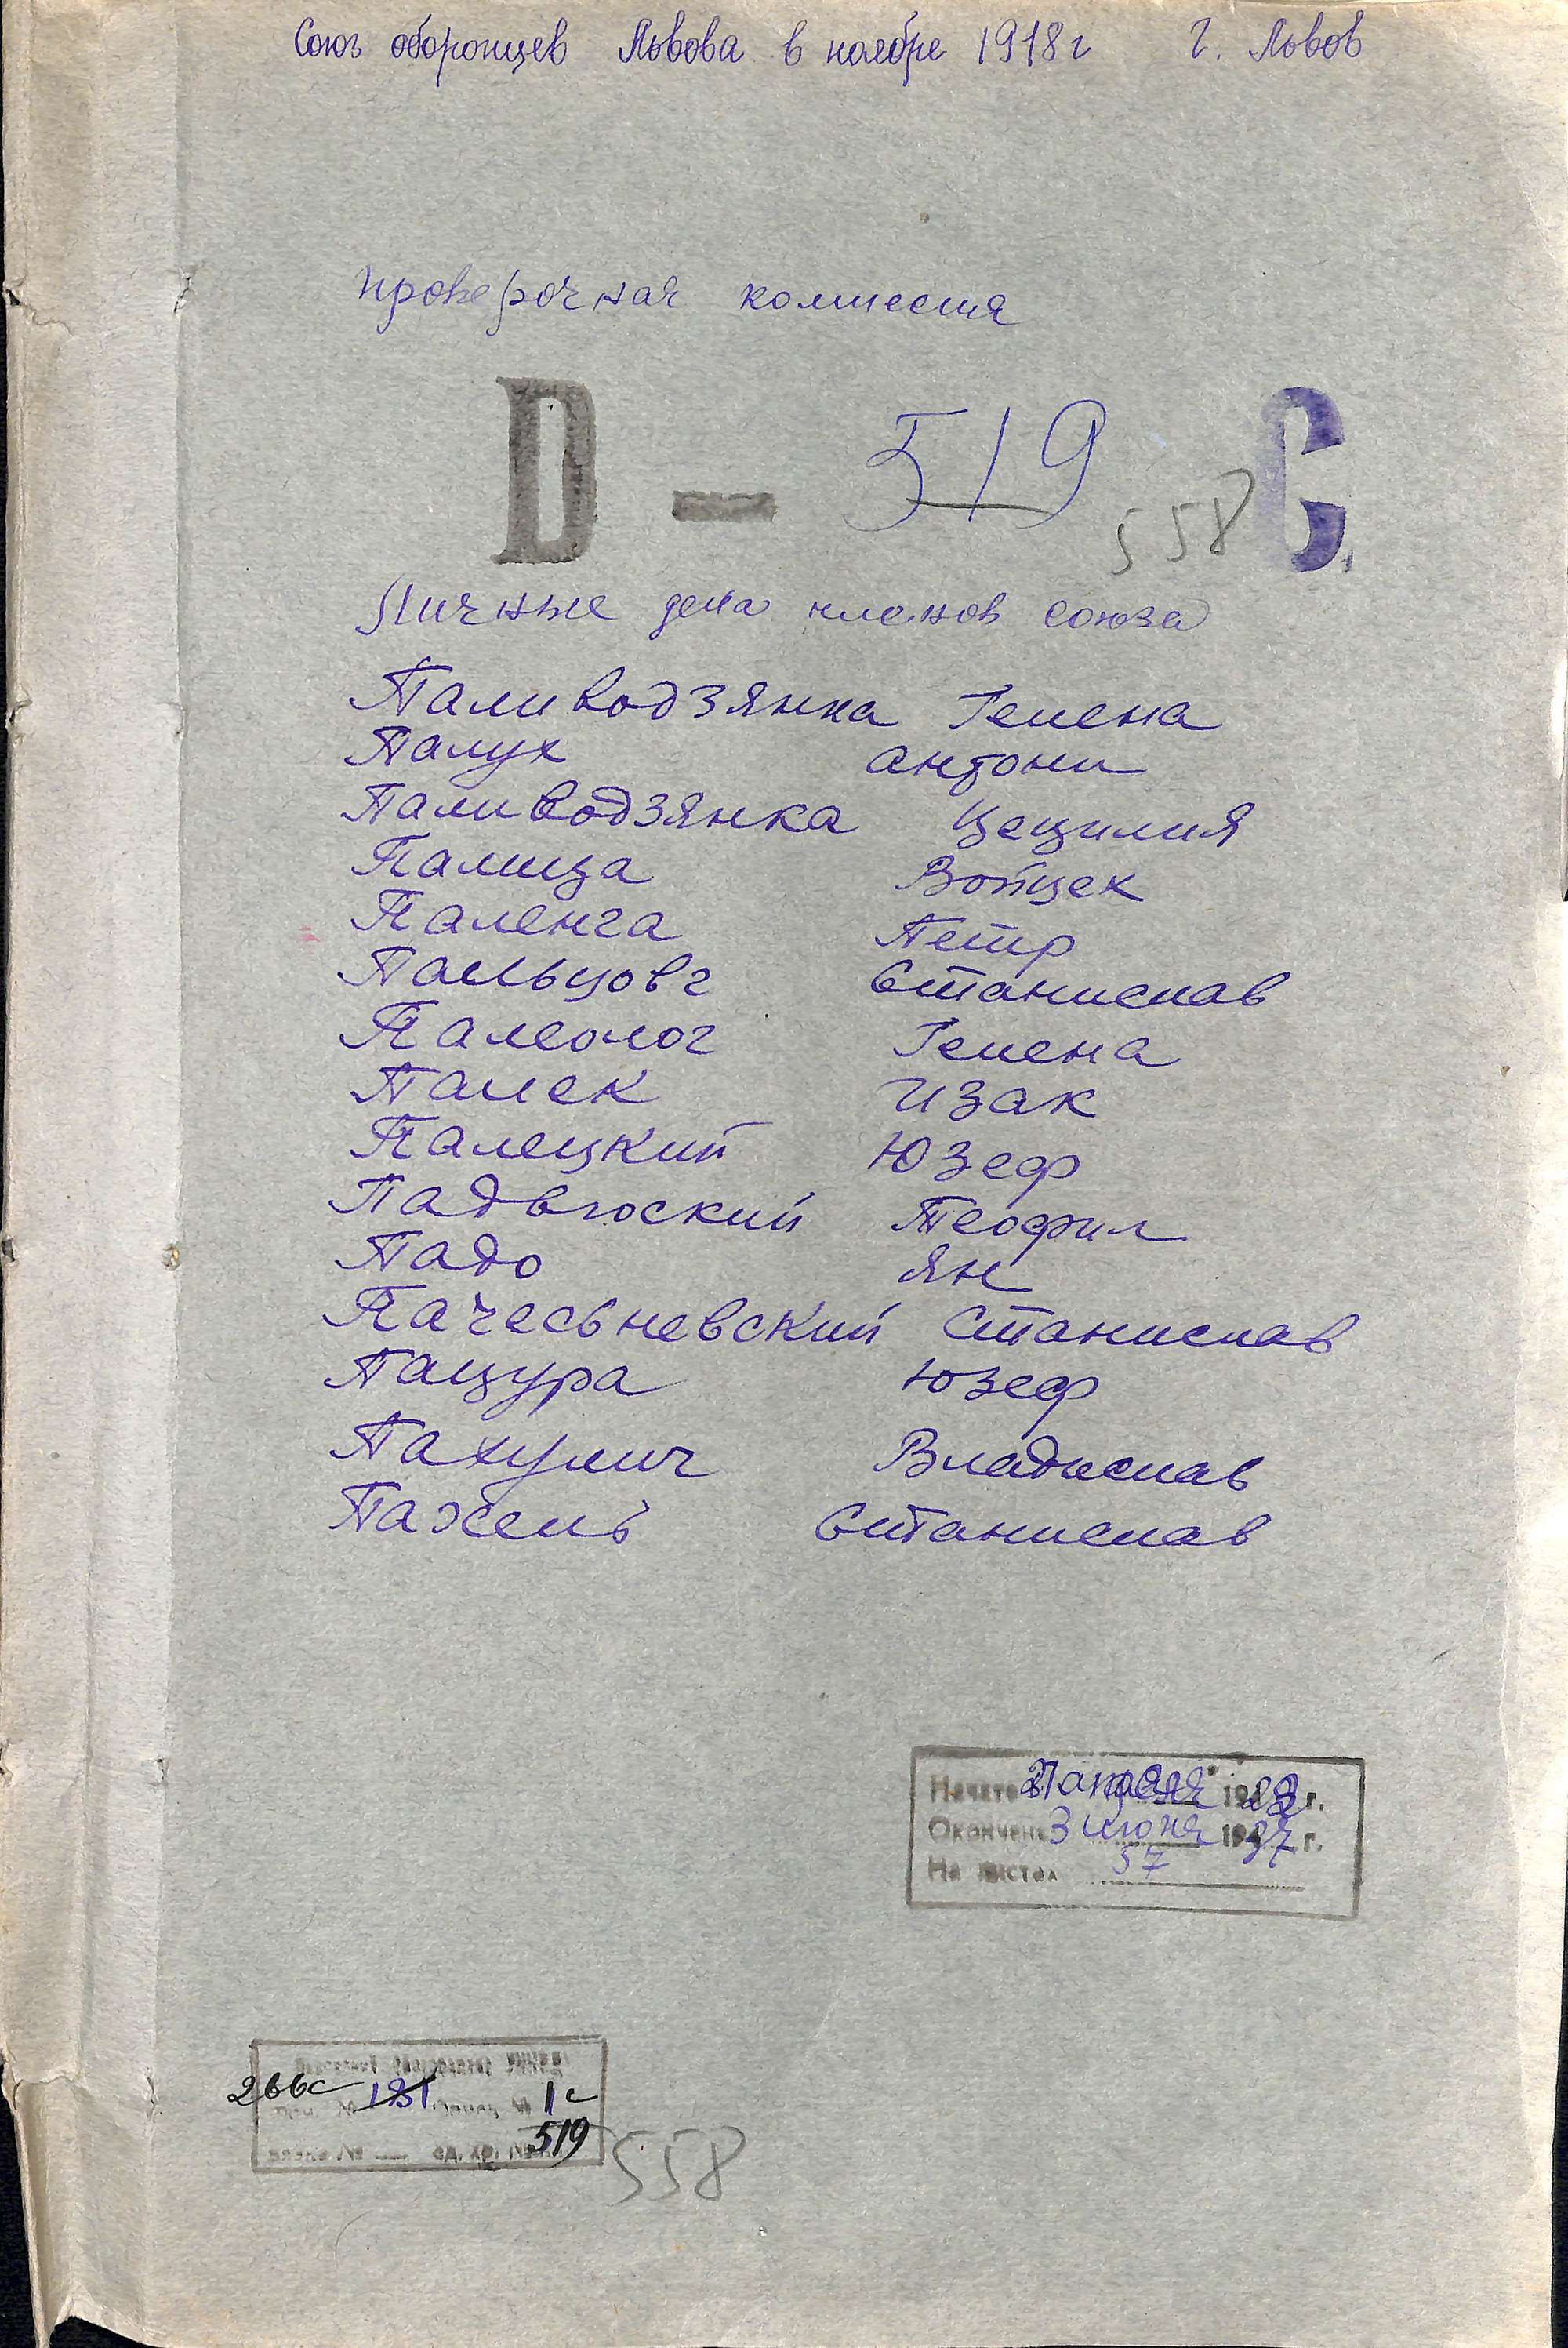 Союз оборонцев Львова в ноябре 1918 г г. Львов
проверочная комиссия
D — 519 558 С
Личные дела членов союза
Паливодзянка Гелена
Палух Антони
Паливодзянка Цецилия
Палица Войцек
Паленга Петр
Пальцовг Станислав
Палеолог Гелена
Палек Изак
Палецкий Юзеф
Падвюский Теофил
Падо Ян
Пачесьневский Станислав
Пацура Юзеф
Пахулич Владислав
Пажель Станислав
Начато 19 г.
Окончено 3 июня 1937 г.
На листах 57
266с 131 1с
519
558